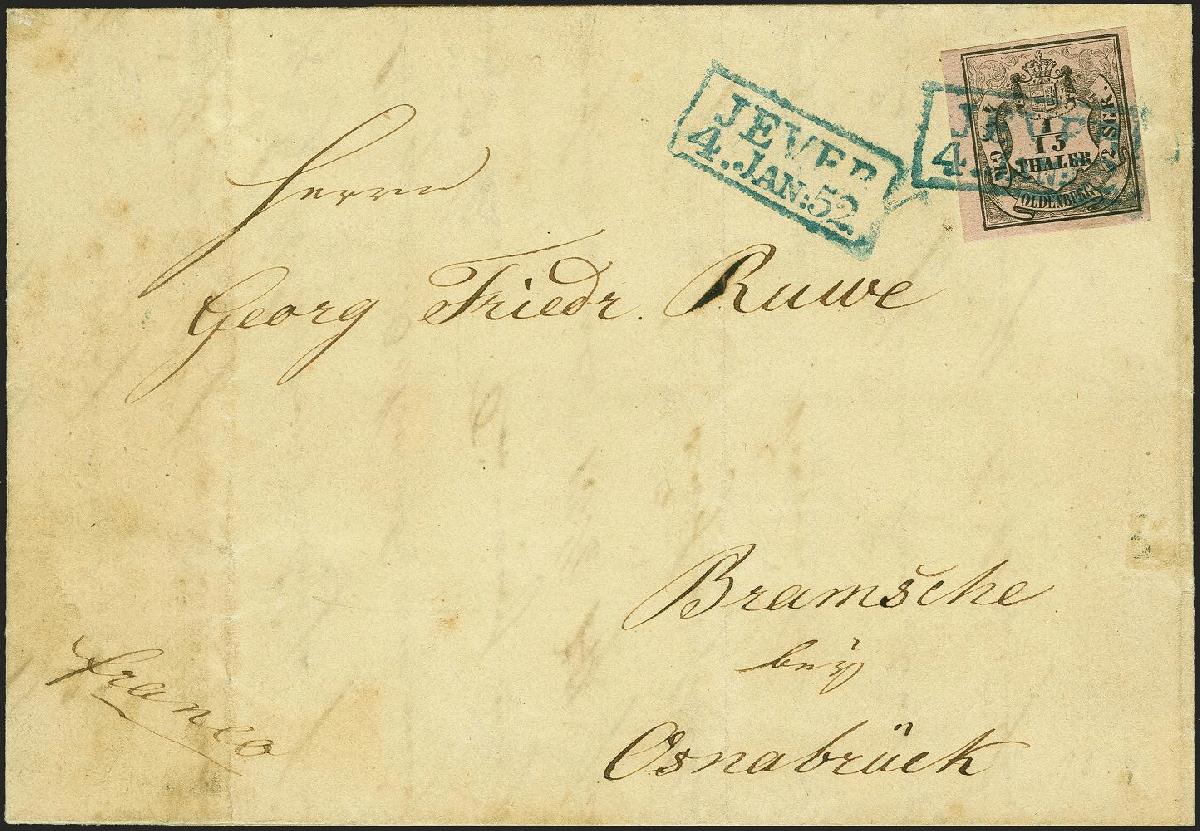 JEVER
4. JAN: 52.
JEVER
4. JAN:
1/15
THALER
2 SGR.
OLDENBURG
Herrn
Georg Friedr. Ruwe
Bramsche
bey
Osnabrück
franco